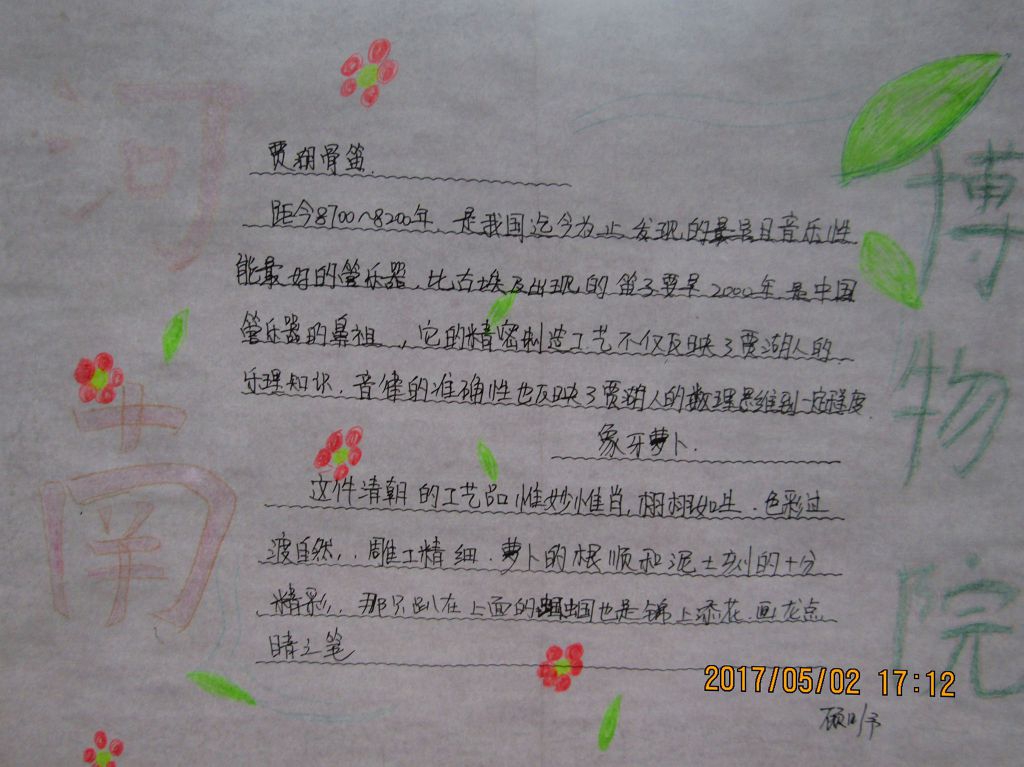 河南
博物院
贾湖骨笛.
距今8700~8200年,是我国迄今为止发现的最早且音乐性
能最好的管乐器,比古埃及出现的笛子要早2000年.是中国
管乐器的鼻祖,它的精密制造工艺不仅反映了贾湖人的
乐理知识.音律的准确性也反映了贾湖人的数理思维到一定程度.
象牙萝卜.
这件清朝的工艺品惟妙惟肖,栩栩如生.色彩过
渡自然,.雕工精细.萝卜的根须和泥土刻的十分
精彩,那只趴在上面的蝈蝈也是锦上添花.画龙点
睛之笔
2017/05/02 17:12